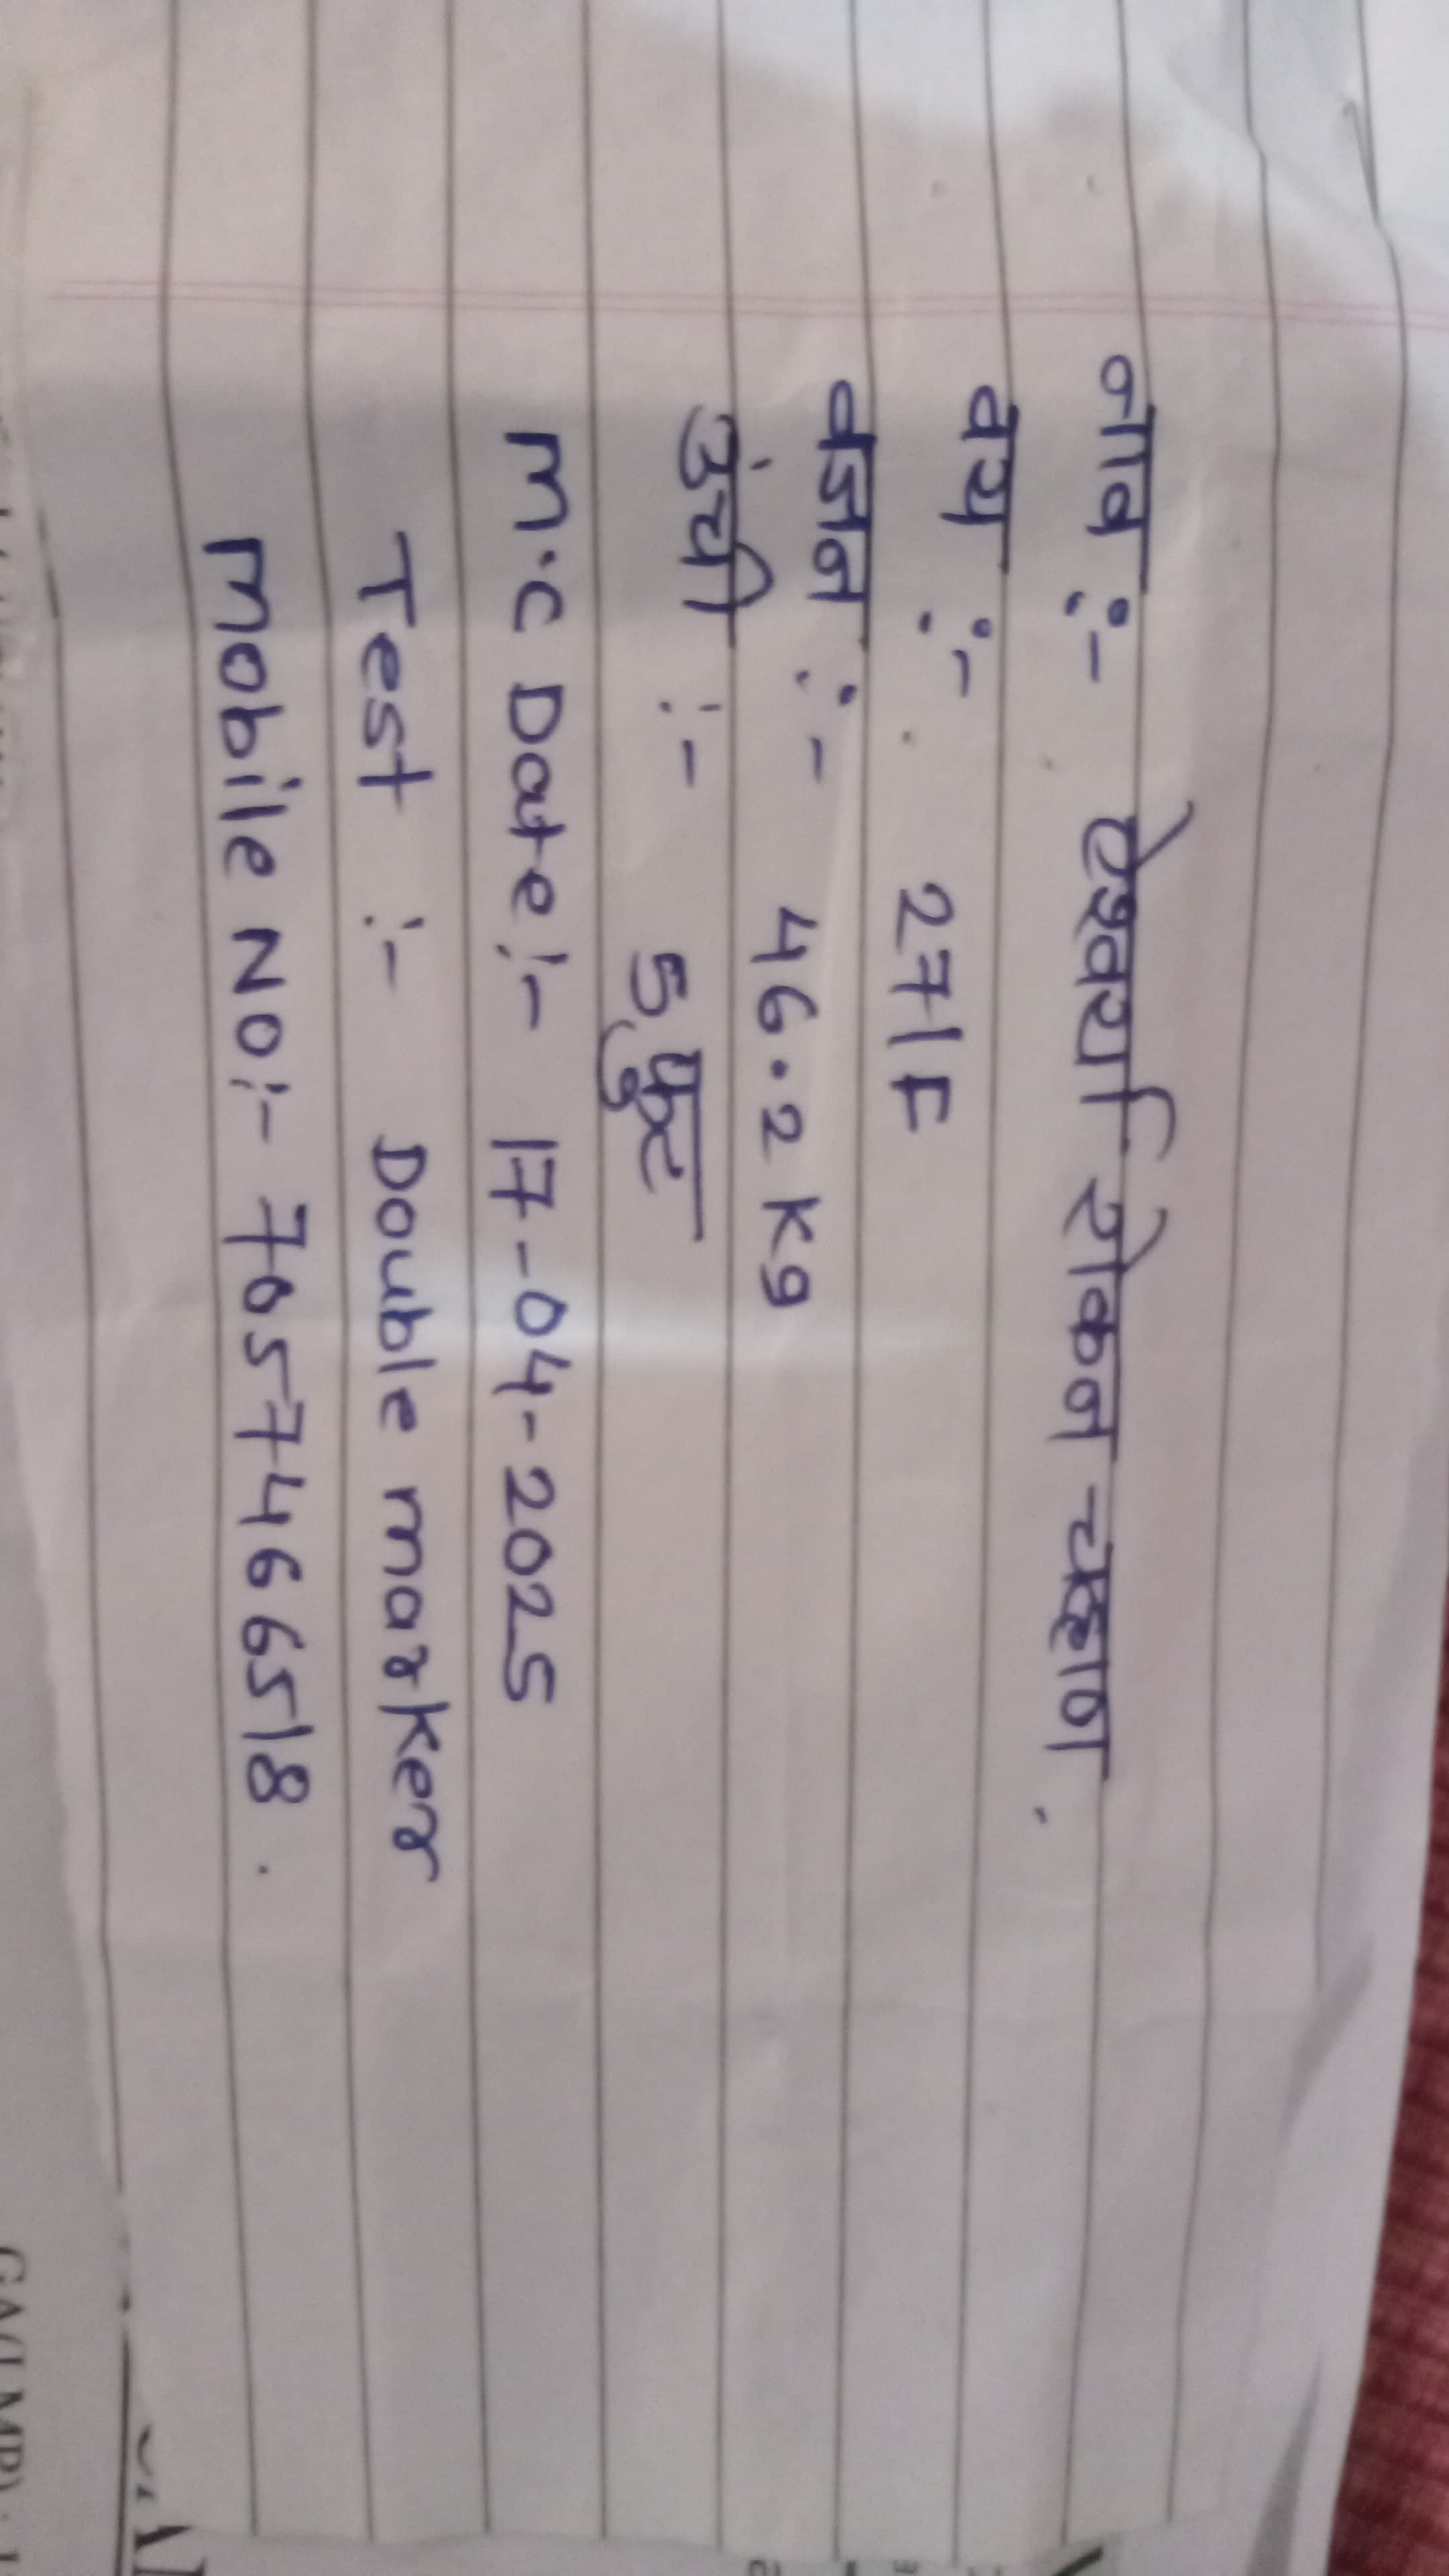 नाव :- ऐश्वर्या रोकन चव्हाण.
वय :- 27/F
वजन :- 46.2 kg
उंची :- 5 फुट
M.C Date:- 17-04-2025
Test :- Double marker
Mobile No:- 7057466518.